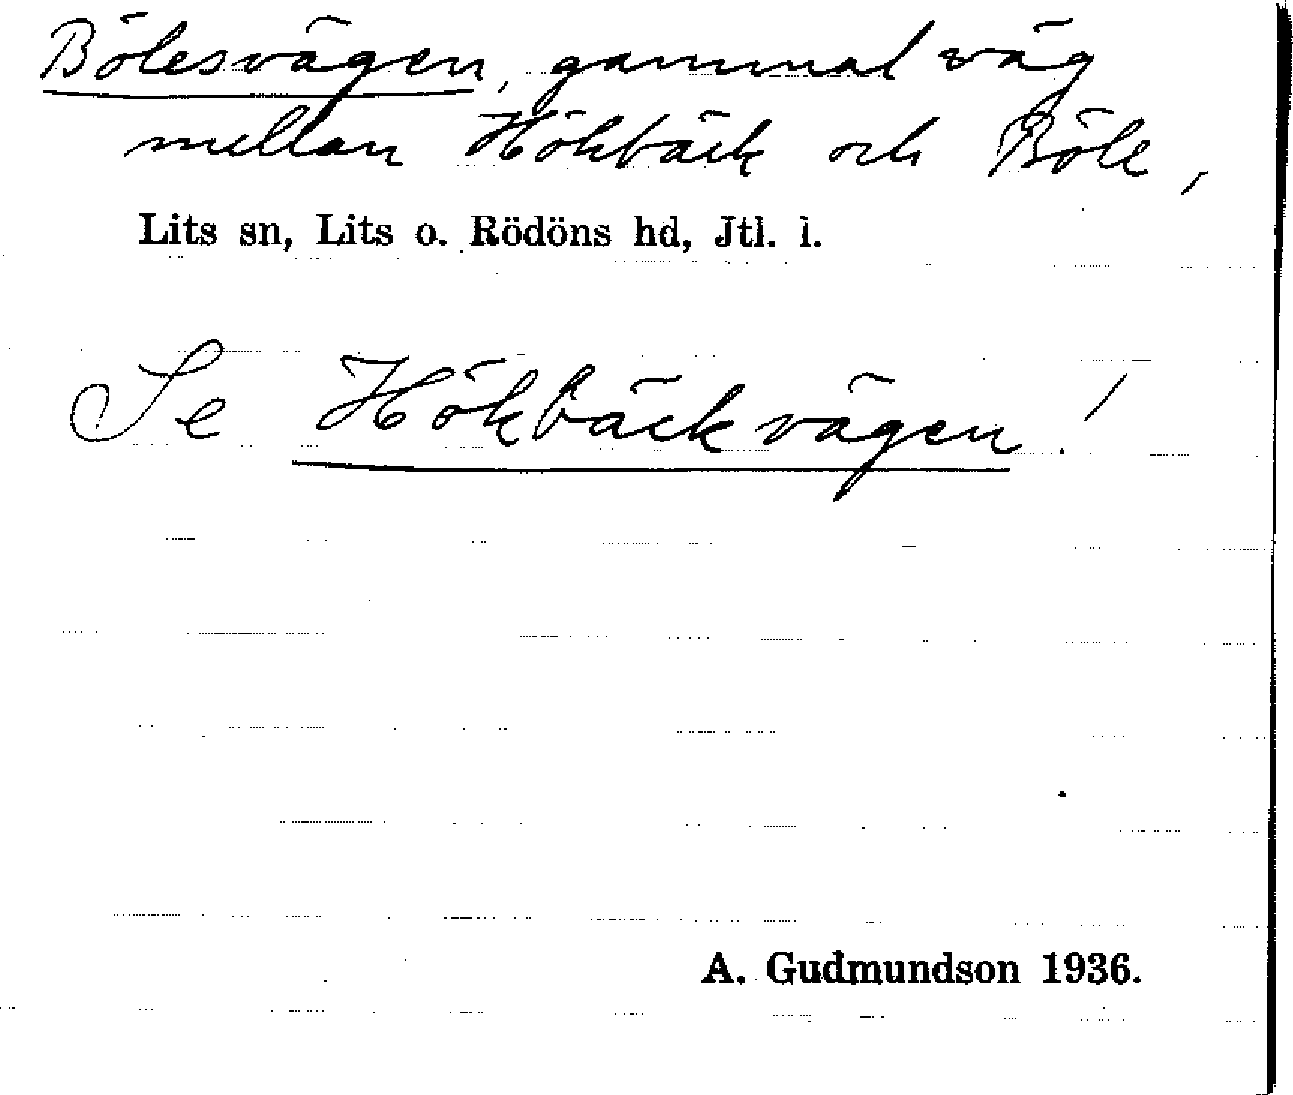 Bölesvägen, gammal väg
mellan Hökbäck och Böle,
Lits sn, Lits o. Rödöns hd, Jtl. l.
Se Hökbäckvägen!
A. Gudmundson 1936.